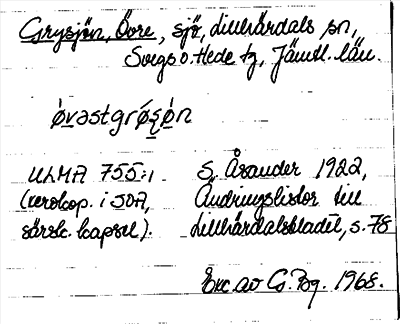 Grysjön, Övre, sjö, Lillhärdals sn,
Svegs o. Hede tg, Jämtl. län.
ø̀vəstgrǿsø̀n
ULMA 755:1 S. Åsander 1922,
(xerokop. i SOA, Ändringslistor till
särsk. kapsel). Lillhärdalsbladet, s. 78
Exc. av G. Bg. 1968.